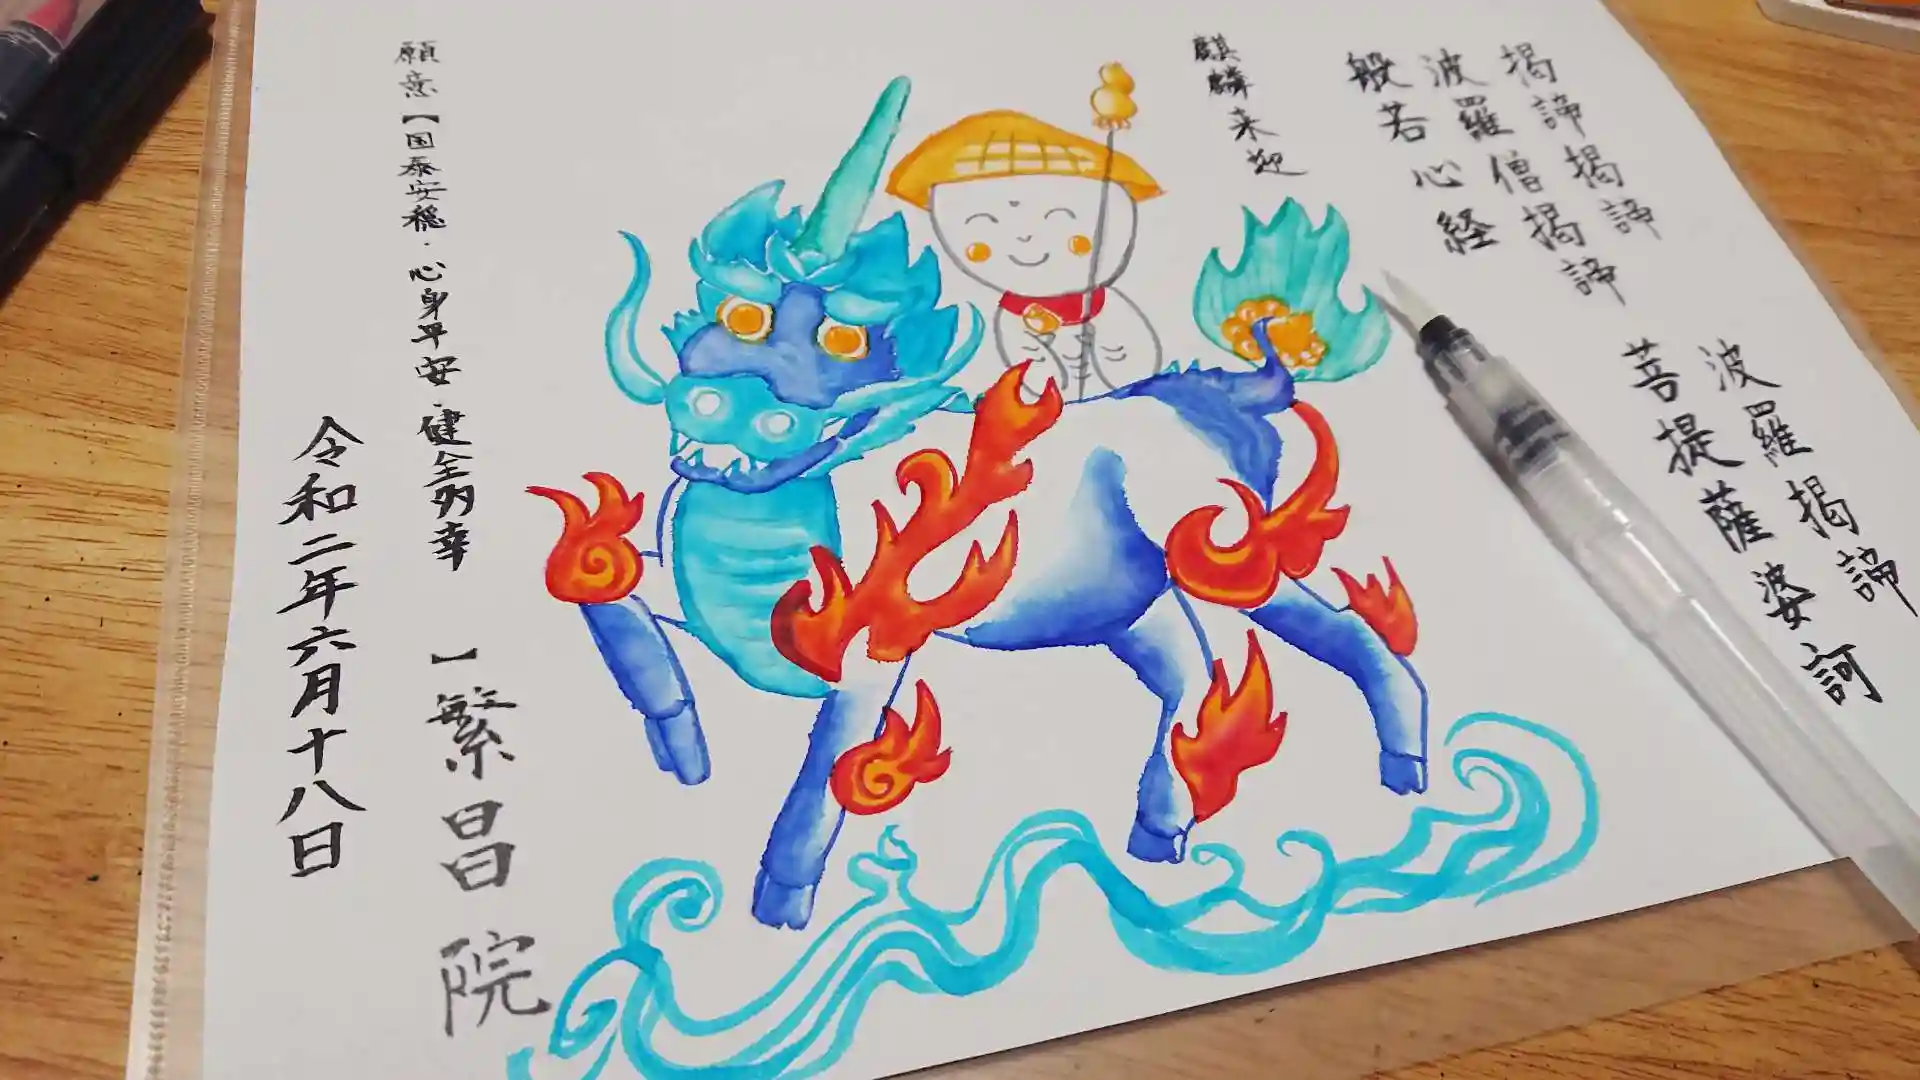 掲諦掲諦 波羅掲諦
波羅僧掲諦 菩提薩婆訶
般若心経
麒麟来迎
願意【国泰安穏・心身平安・健全多幸 】繁昌院
令和二年六月十八日